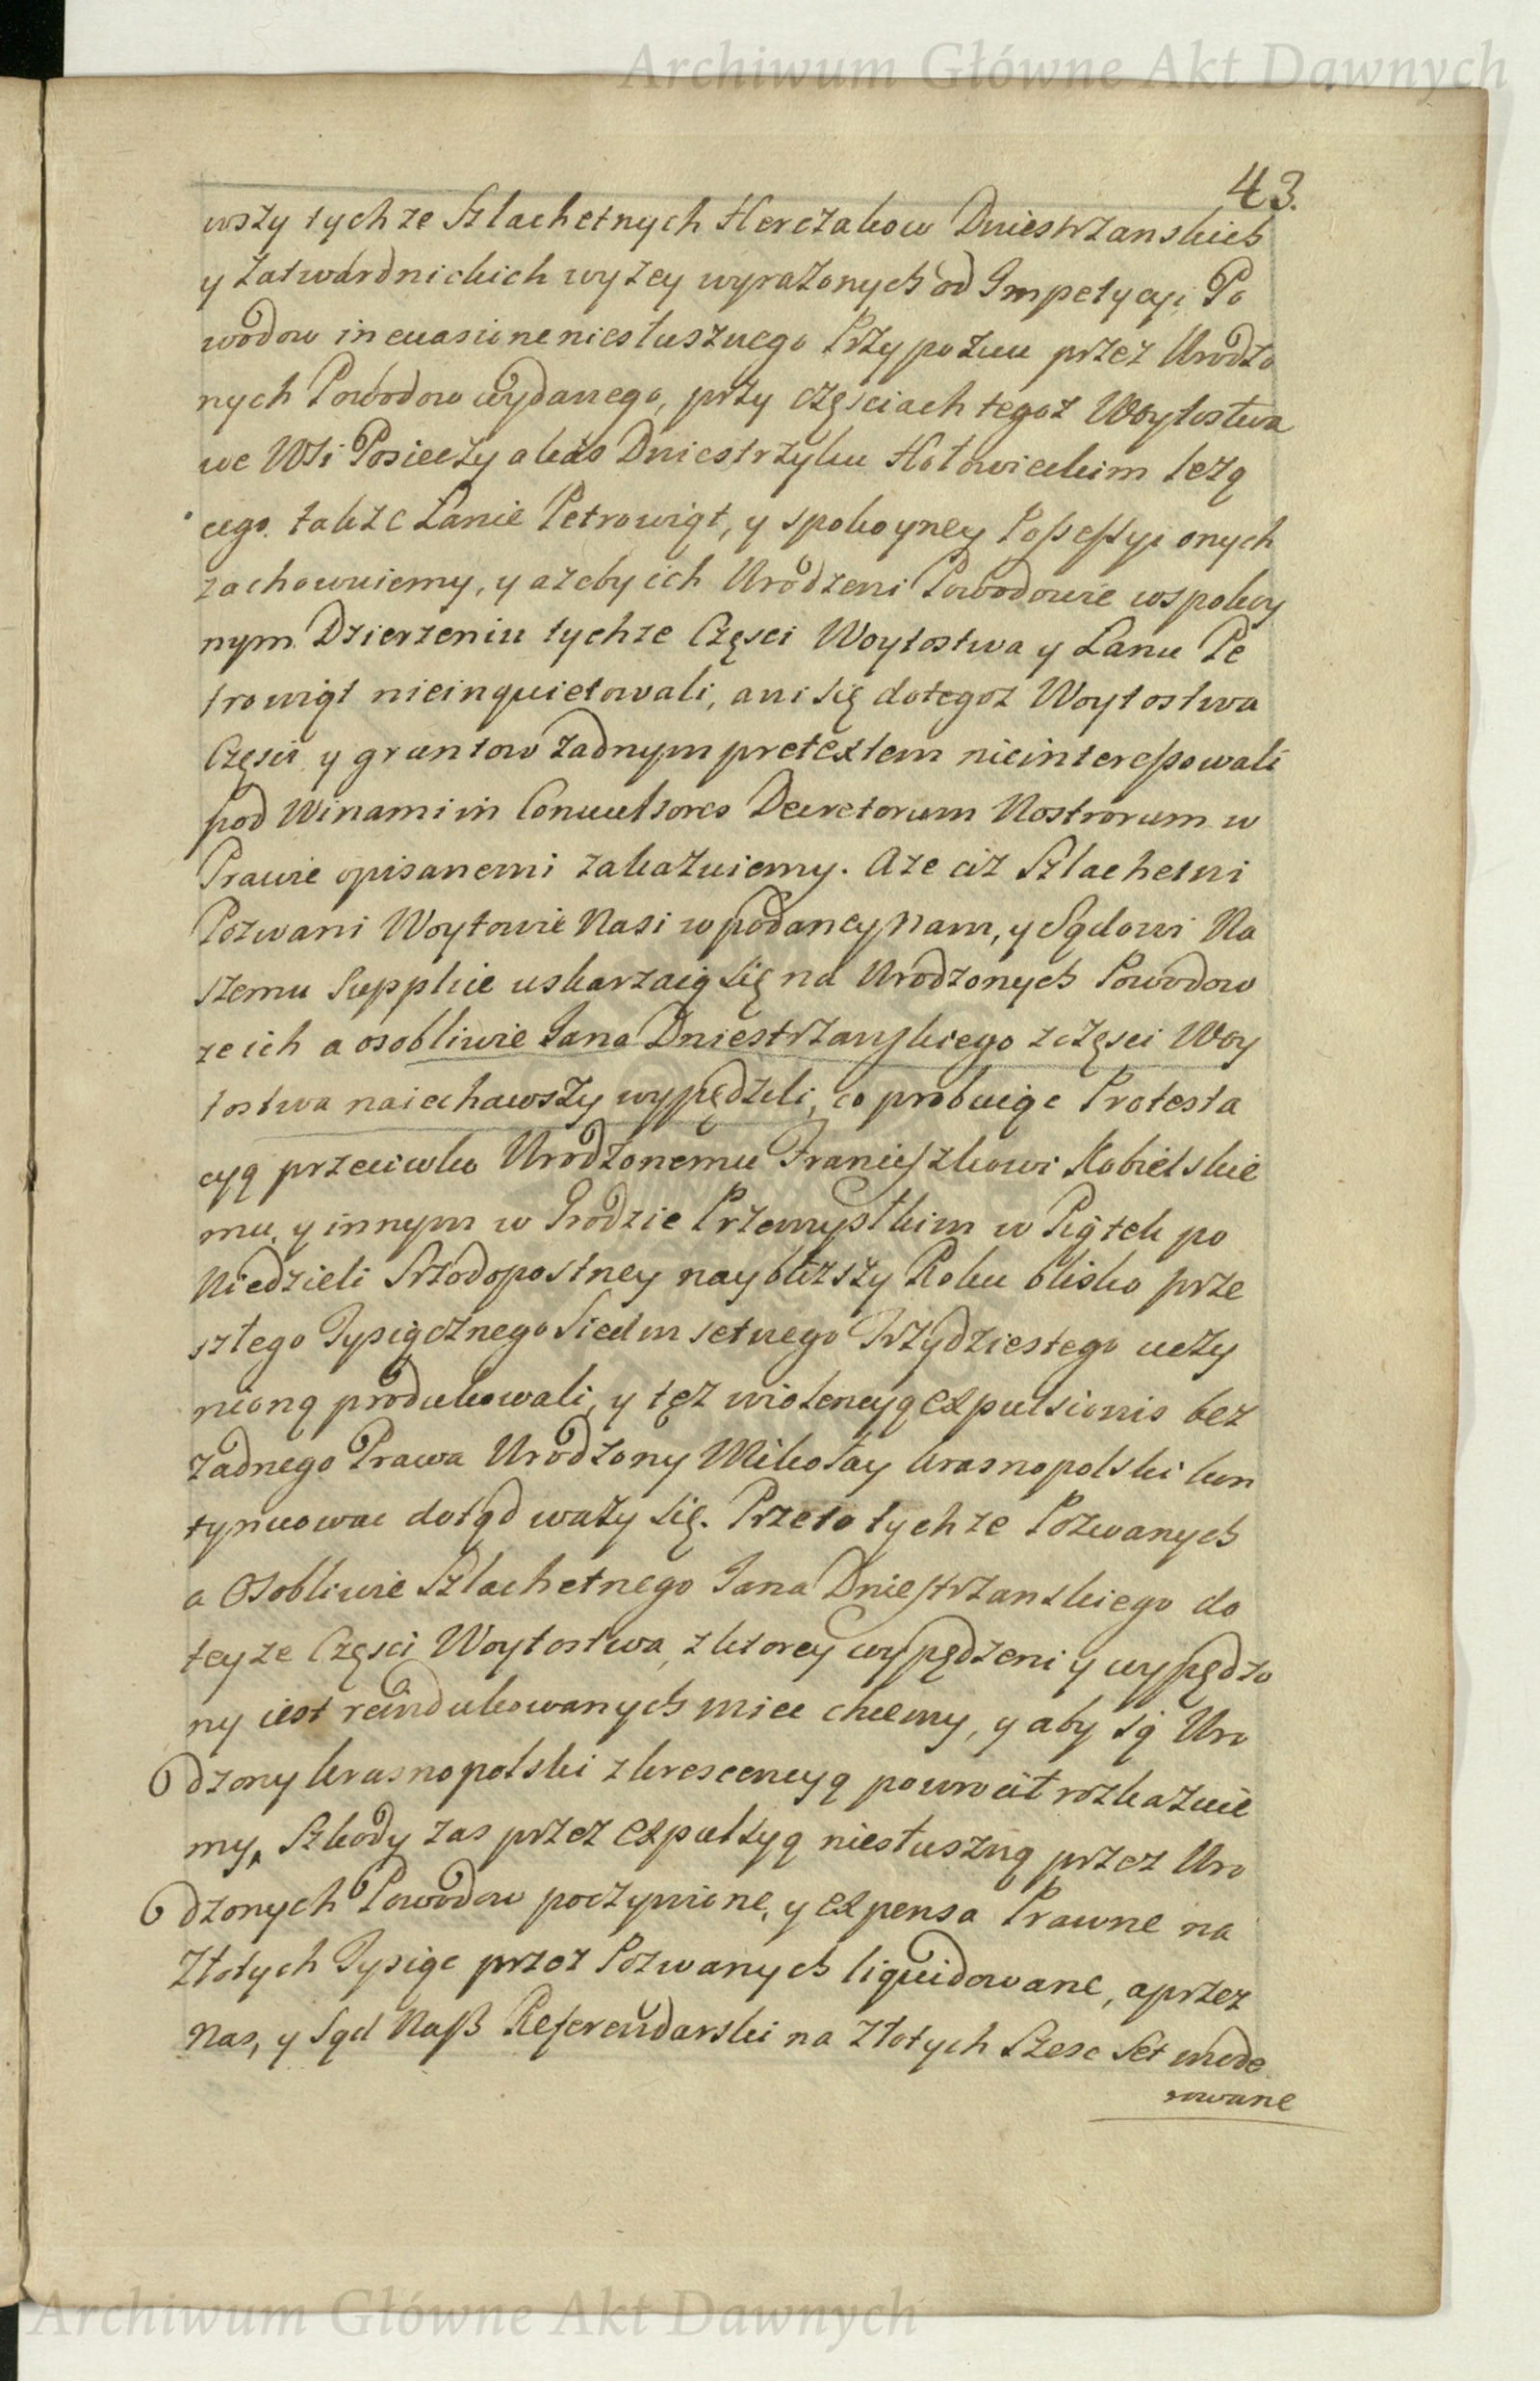 Archiwum Główne Akt Dawnych
43.
wszy tychze Szlachetnych Herczakow Dniestrzanskich
y Zatwardnickich wyzey wyrażonych od Impetycyi Po
wodow in euasionem niesłusznego Przypozwu przez Urodzo
nych Powodow wydanego, przy częściach tegoz Woytostwa
we Wsi Posieczy alias Dniestrzyku Hołowieckim leżą
cego. także Łanie Petrowiąt, y spokoyney Possessyi onych
zachowuiemy, y azeby ich Urodzeni Powodowie wspokoy
nym Dzierzeniu tychze Częsci Woytostwa y Łanu Pe
trowiąt nieinquietowali, ani się dotegoz Woytostwa
Częsci y gruntow żadnym pretextem nieinteressowali
pod Winami in Conuulsores Decretorum Nostrorum w
Prawie opisanemi zakazuiemy. Aze ciz Szlachetni
Pozwani Woytowie Nasi w podaney Nam, y Sądowi Na
szemu Supplice uskarzaią się na Urodzonych Powodow
ze ich a osobliwie Jana Dniestrzanskiego z częsci Woy
tostwa naiechawszy wypędzili, co probuiąc Protesta
cyą przeciwko Urodzonemu Franciszkowi Kobielskie
mu, y innym w Grodzie Przemyslkim w Piątek po
Niedzieli Srzodopostney naybliższy Roku blisko prze
szłego Tysiącznego Siedmsetnego Trzydziestego uczy
nioną produkowali, y tęz wiolencyą expulsionis bez
żadnego Prawa Urodzony Mikołay Krasnopolski kon
tynuowac dotąd waży się. Przeto tychze Pozwanych
a Osobliwie Szlachetnego Jana Dniestrzanskiego do
teyze Częsci Woytostwa, z ktorey wypędzeni y wypędzo
ny iest reindukowanych miec chcemy, y aby ią Uro
dzony Krasnopolski z krescencyą powrocił rozkazuie
my, Szkody zas przez expulsyą niesłuszną przez Uro
dzonych Powodow poczynione, y expensa Prawne na
Złotych Tysiąc przez Pozwanych liquidowane, a przez
Nas, y Sąd Nasz Referendarski na Złotych Szesc Set mode
rowane
Archiwum Główne Akt Dawnych